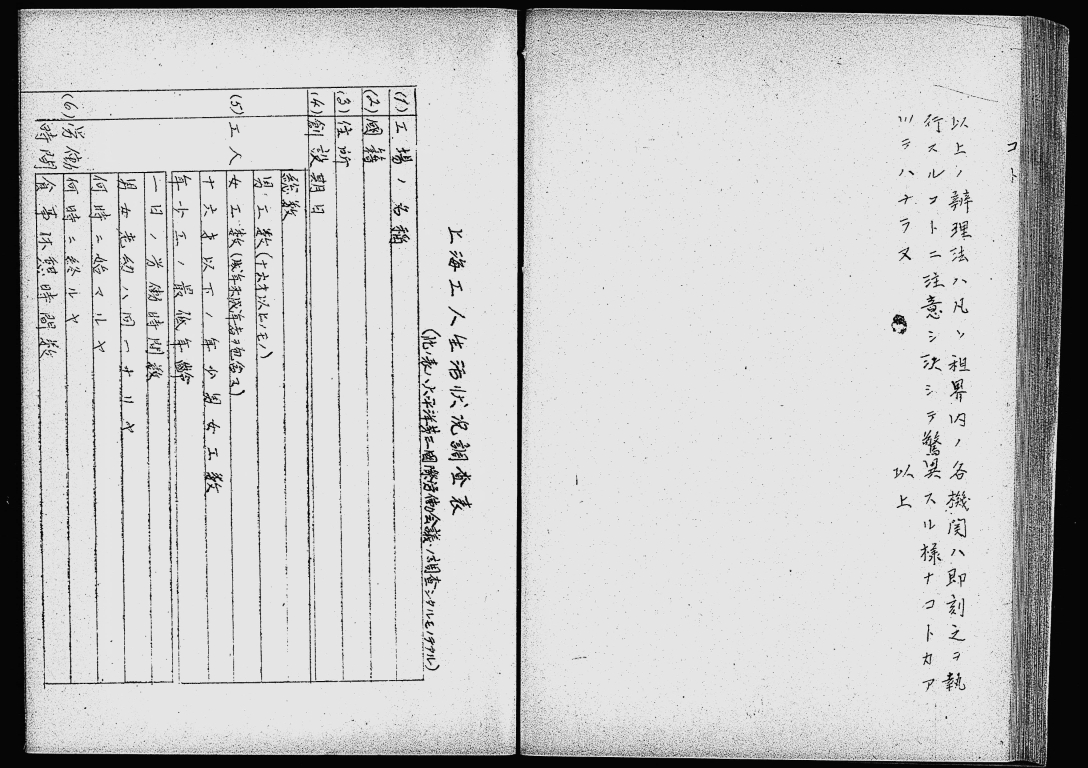 コト
以上ノ辨理法ハ凡ソ租界内ノ各機関ハ即刻之ヲ執
行スルコトニ注意シ決シテ驚異スル様ナコトカア
ツテハナラヌ
以上
上海工人生活状況調査表
(此ノ表ハ太平洋第二国際労働会議ノ調査シタルモノナル)
(1)工場ノ名稱
(2)國籍
(3)住所
(4)創設期日
(5)工人
総数
男工数(十六才以上ノモノ)
女工数(成年未成年者ヲ包含ス)
十六才以下ノ年少男女工数
年少工ノ最低年齢
一日ノ労働時間数
男女老幼ハ同一ナリヤ
(6)労働時間
何時ニ始マルヤ
何時ニ終ルヤ
食事休憩時間数